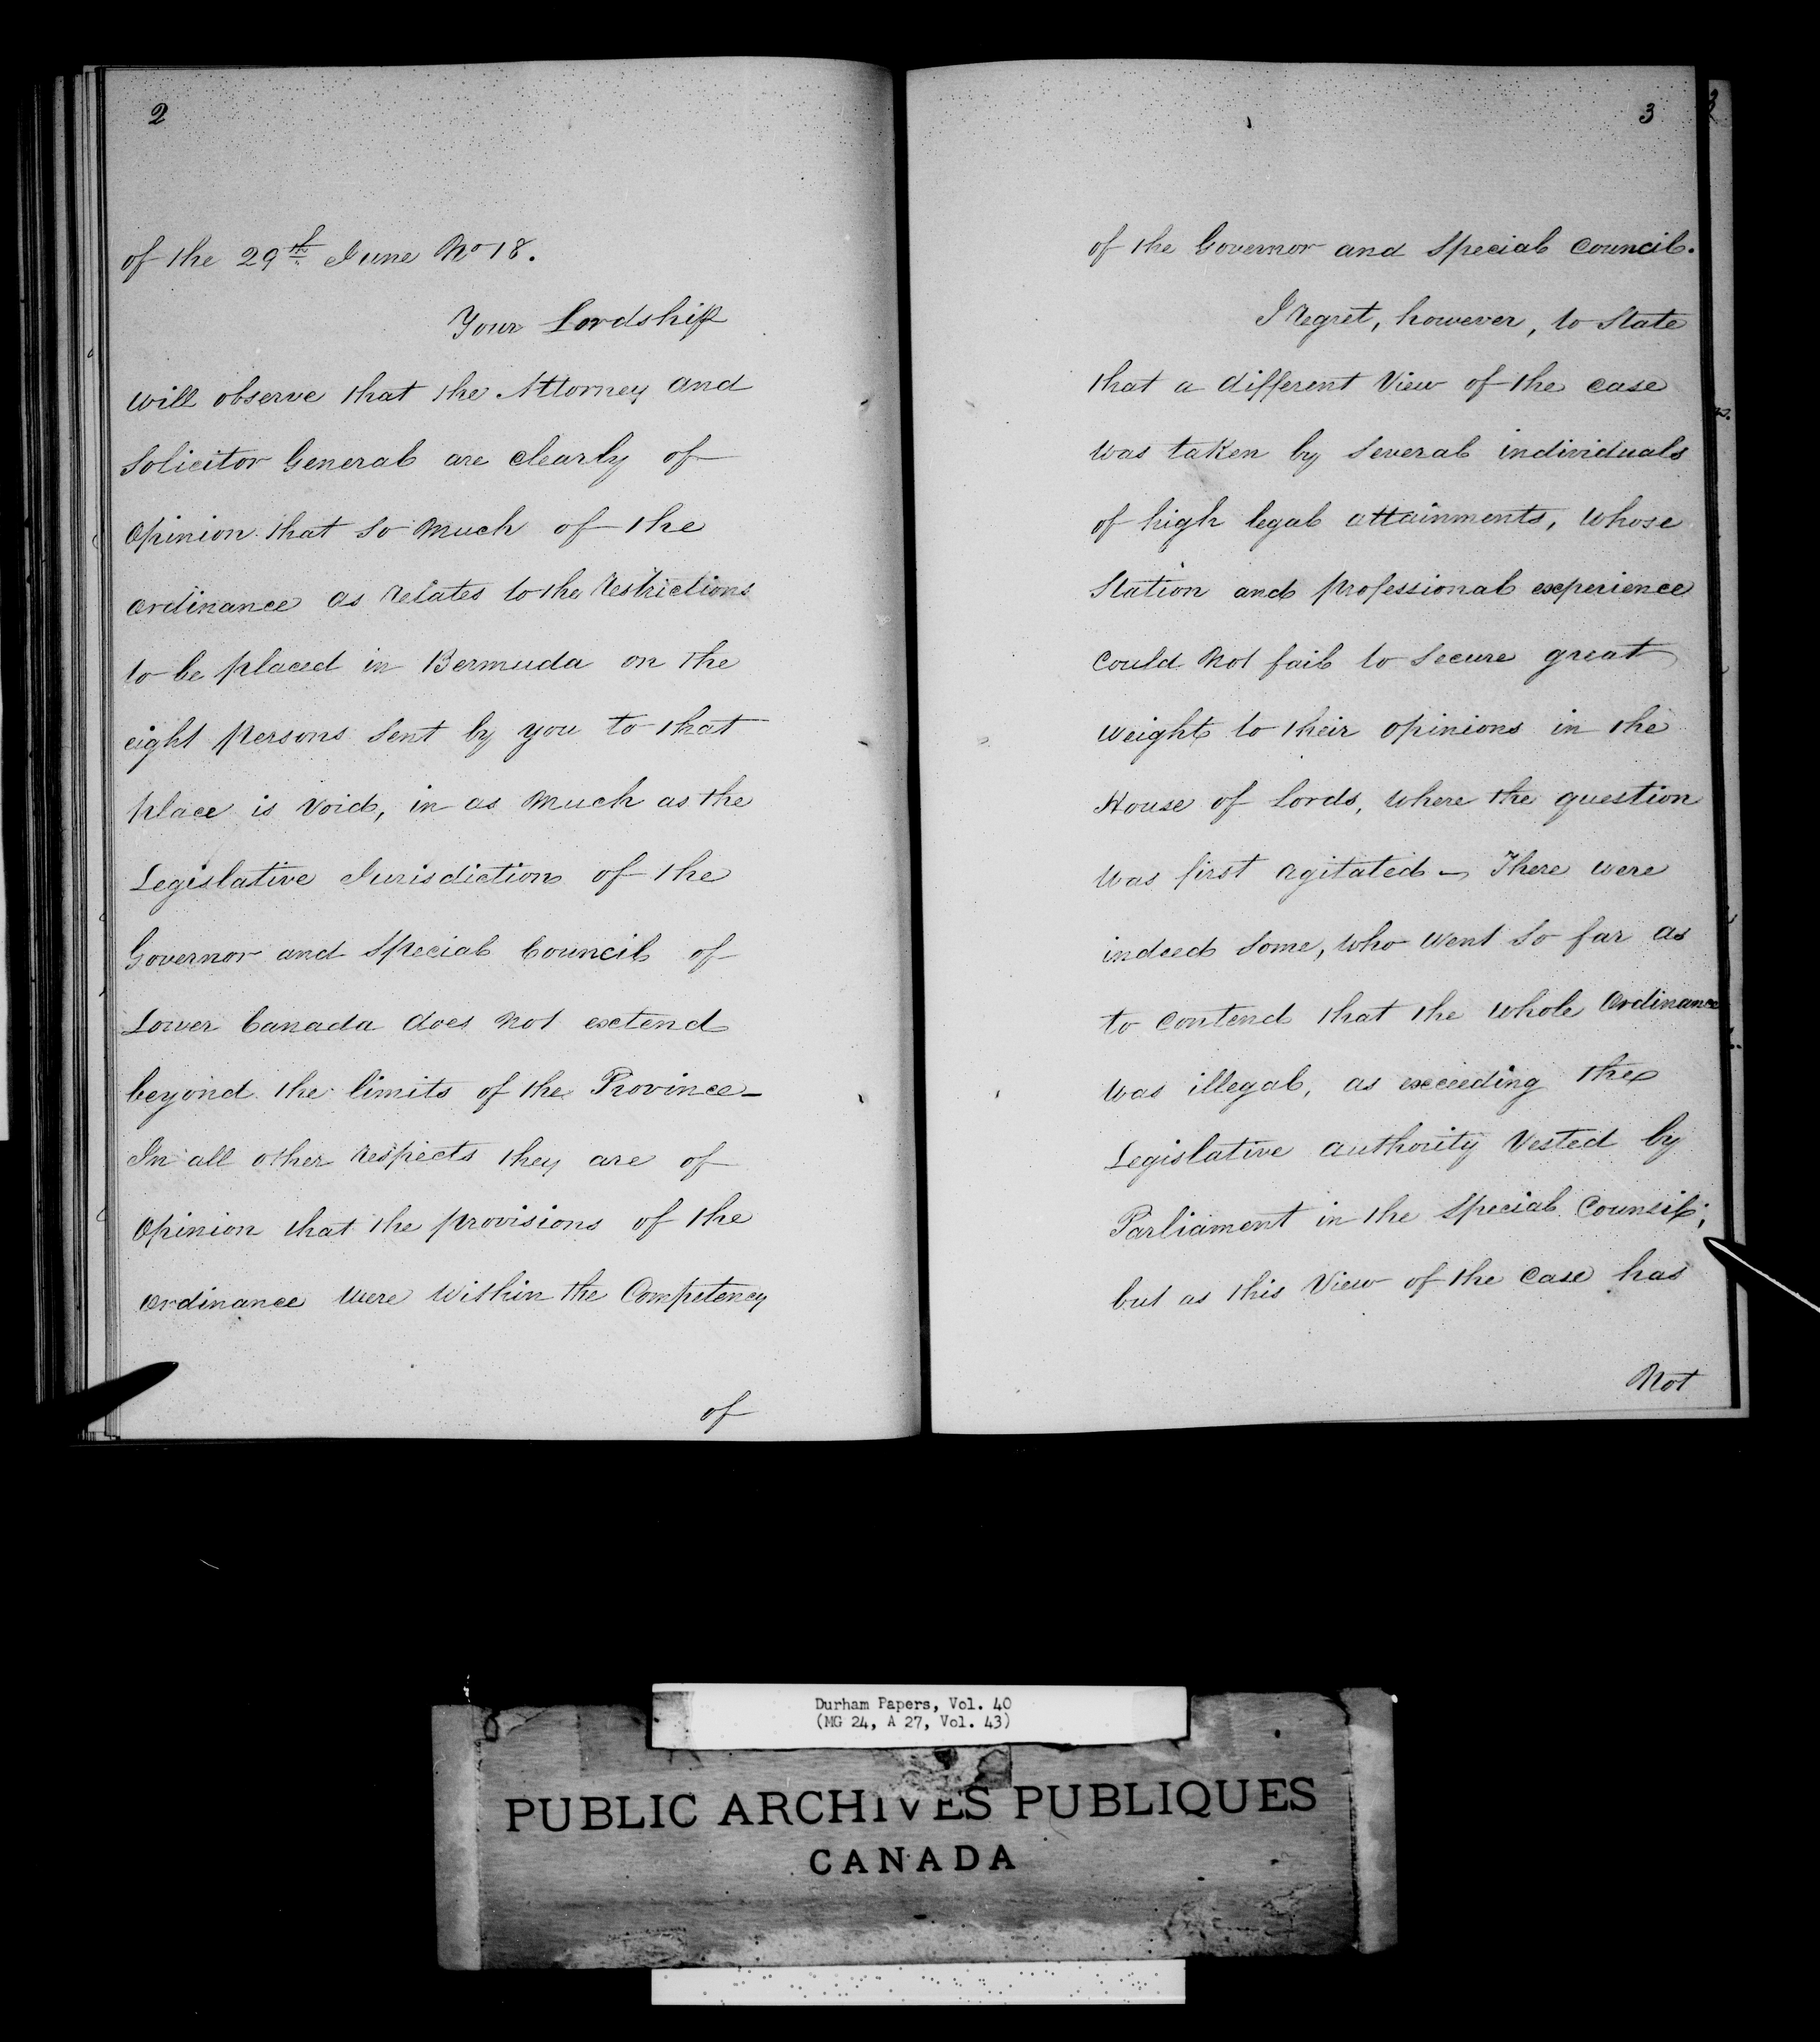 2
of the 29th June No 18.
Your Lordship
will observe that the Attorney and
Solicitor General are clearly of
Opinion that so much of the
Ordinance as relates to the restrictions
to be placed in Bermuda on the
eight persons sent by you to that
place is void, in as much as the
Legislative Jurisdiction of the
Governor and Special Council of
Lower Canada does not extend
beyond the limits of the Province _
In all other respects they are of
Opinion that the provisions of the
Ordinance were within the Competency
of
3
of the Governor and Special Council.
I regret, however, to State
that a different View of the case
was taken by Several individuals
of high legal attainments, whose
Station and professional experience
could not fail to secure great
weight to their opinions in the
House of Lords, where the question
was first agitated – There were
indeed some, who went so far as
to contend that the whole Ordinance
was illegal, as exceeding the
Legislative authority vested by
Parliament in the Special Counsil;
but as this View of the case has
Not
Durham Papers, Vol. 40
(MG 24, A 27, Vol. 43)
PUBLIC ARCHIVES PUBLIQUES
CANADA